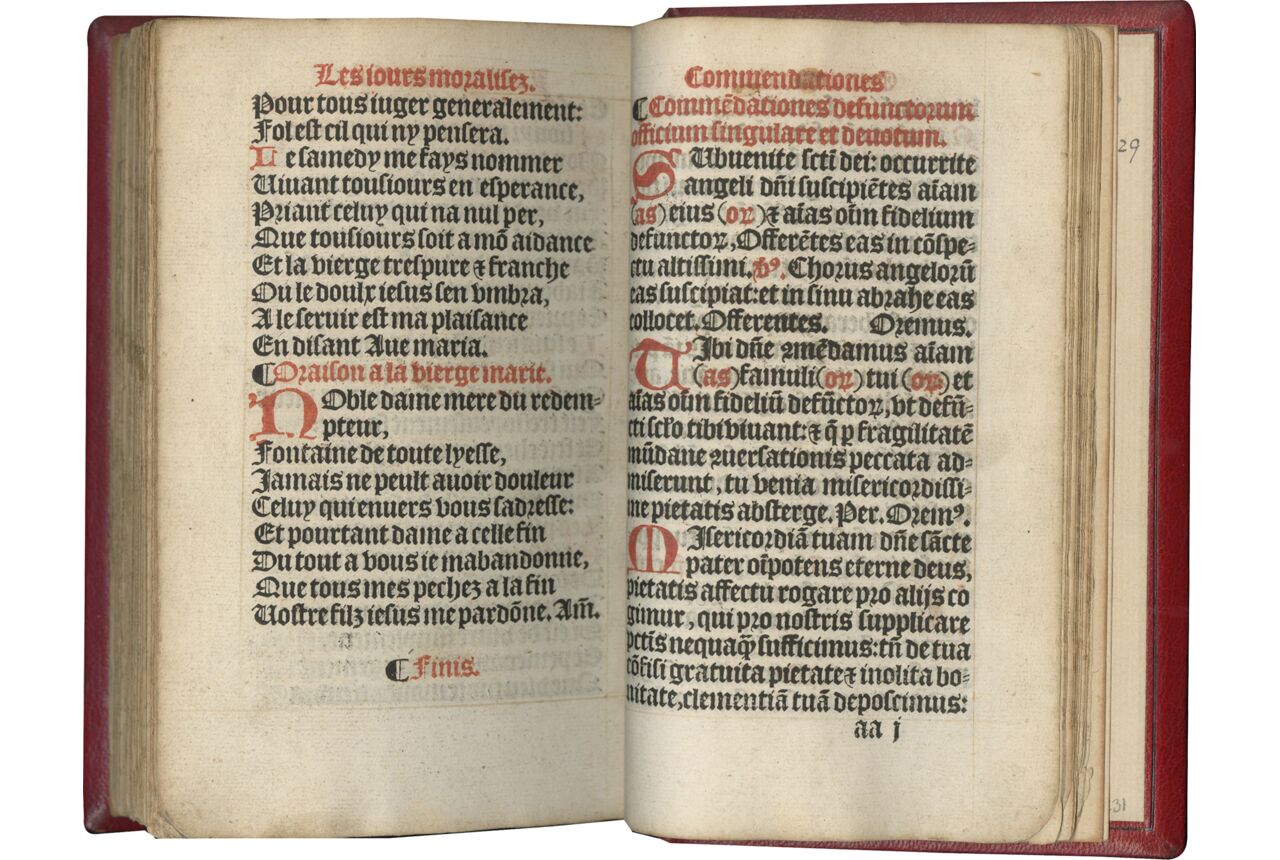 Les iours moralisez.
Pour tous iuger generalement:
Fol est cil qui ny pensera.
Le samedy me fays nommer
Uiuant tousiours en esperance,
Priant celuy qui na nul per,
Que tousiours soit a mõ aidance
Et la vierge trespure ⁊ franche
Ou le doulx iesus sen vmbra,
A le seruir est ma plaisance
En disant Aue maria.
¶ Oraison a la vierge marie.
NOble dame mere du redem⸗
pteur,
Fontaine de toute lyesse,
Jamais ne peult auoir douleur
Celuy qui enuers vous sadresse:
Et pourtant dame a celle fin
Du tout a vous ie mabandonne,
Que tous mes pechez a la fin
Uostre filz iesus me pardõne. Am̃.
¶ Finis.
Commendationes
¶ Commẽdationes defunctorum
officium singulare et deuotum.
SUbuenite sctĩ dei: occurrite
angeli dñi suscipiẽtes aĩam
(as) eius (oꝝ) ⁊ aĩas oĩm fidelium
defunctoꝝ, Offerẽtes eas in cõspe⸗
ctu altissimi. v̾ꝰ. Chorus angelorũ
eas suscipiat: et in sinu abrahe eas
collocet. Offerentes. Oremus.
TIbi dñe ꝯmẽdamus aĩam
(as) famuli (oꝝ) tui (oꝝ) et
aĩas oĩm fideliũ defũctoꝝ, vt defũ⸗
cti sclo tibi viuant: ⁊ q̃ ꝑ fragilitatẽ
mũdane ꝯuersationis peccata ad⸗
miserunt, tu venia misericordissi⸗
me pietatis absterge. Per. Oremꝰ.
MIsericordiã tuam dñe sãcte
pater oĩpotens eterne deus,
pietatis affectu rogare pro alijs co
gimur, qui pro nostris supplicare
pctĩs nequaq̃ sufficimus: tñ de tua
cõfisi gratuita pietate ⁊ inolita bo⸗
nitate, clementiã tuã deposcimus:
aa j
29
231